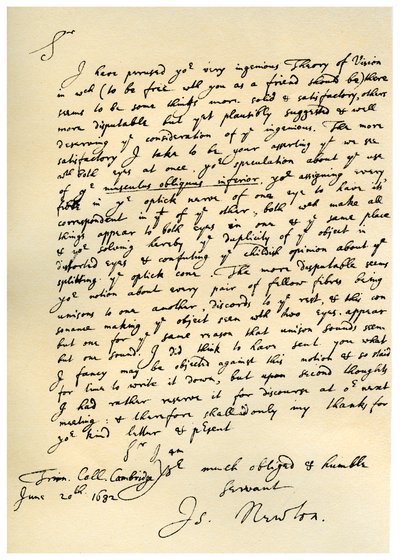 Sr
I have perused yor very ingenious Theory of Vision
in wch (to be free with you as a friend should be) there
seems to be some things more solid & satisfactory, others
more disputable but yet plausibly suggested & well
deserving ye consideration of ye ingenious. The more
satisfactory I take to be your asserting yt we see
with both eyes at once, yor speculation about ye use
of ye musculus obliquus inferior, yor assigning every
fibre in ye optick nerve of one eye to have its
correspondent in yt of ye other, both wch make all
things appear to both eyes in one & ye same place
& yor solving hereby ye duplicity of ye object in
distorted eyes & confuting ye childish opinion about ye
splitting ye optick cone. The more disputable seems
yor notion about every pair of fellow fibres being
unisons to one another discords to ye rest, & this con
sonance making ye object seen with two eyes appear
but one for ye same reason that unison sounds seem
but one sound. I did think to have sent you what
I fancy may be objected against this notion & so staid
for time to write it down, but upon second thoughts
I had rather reserve it for discourse at or next
meeting: & therefore shall add only my thanks for
yor kind letter & present
Sr I am
Yor much obliged & humble
Servant
Is. Newton.
Trin. Coll. Cambridge
June 20th. 1682